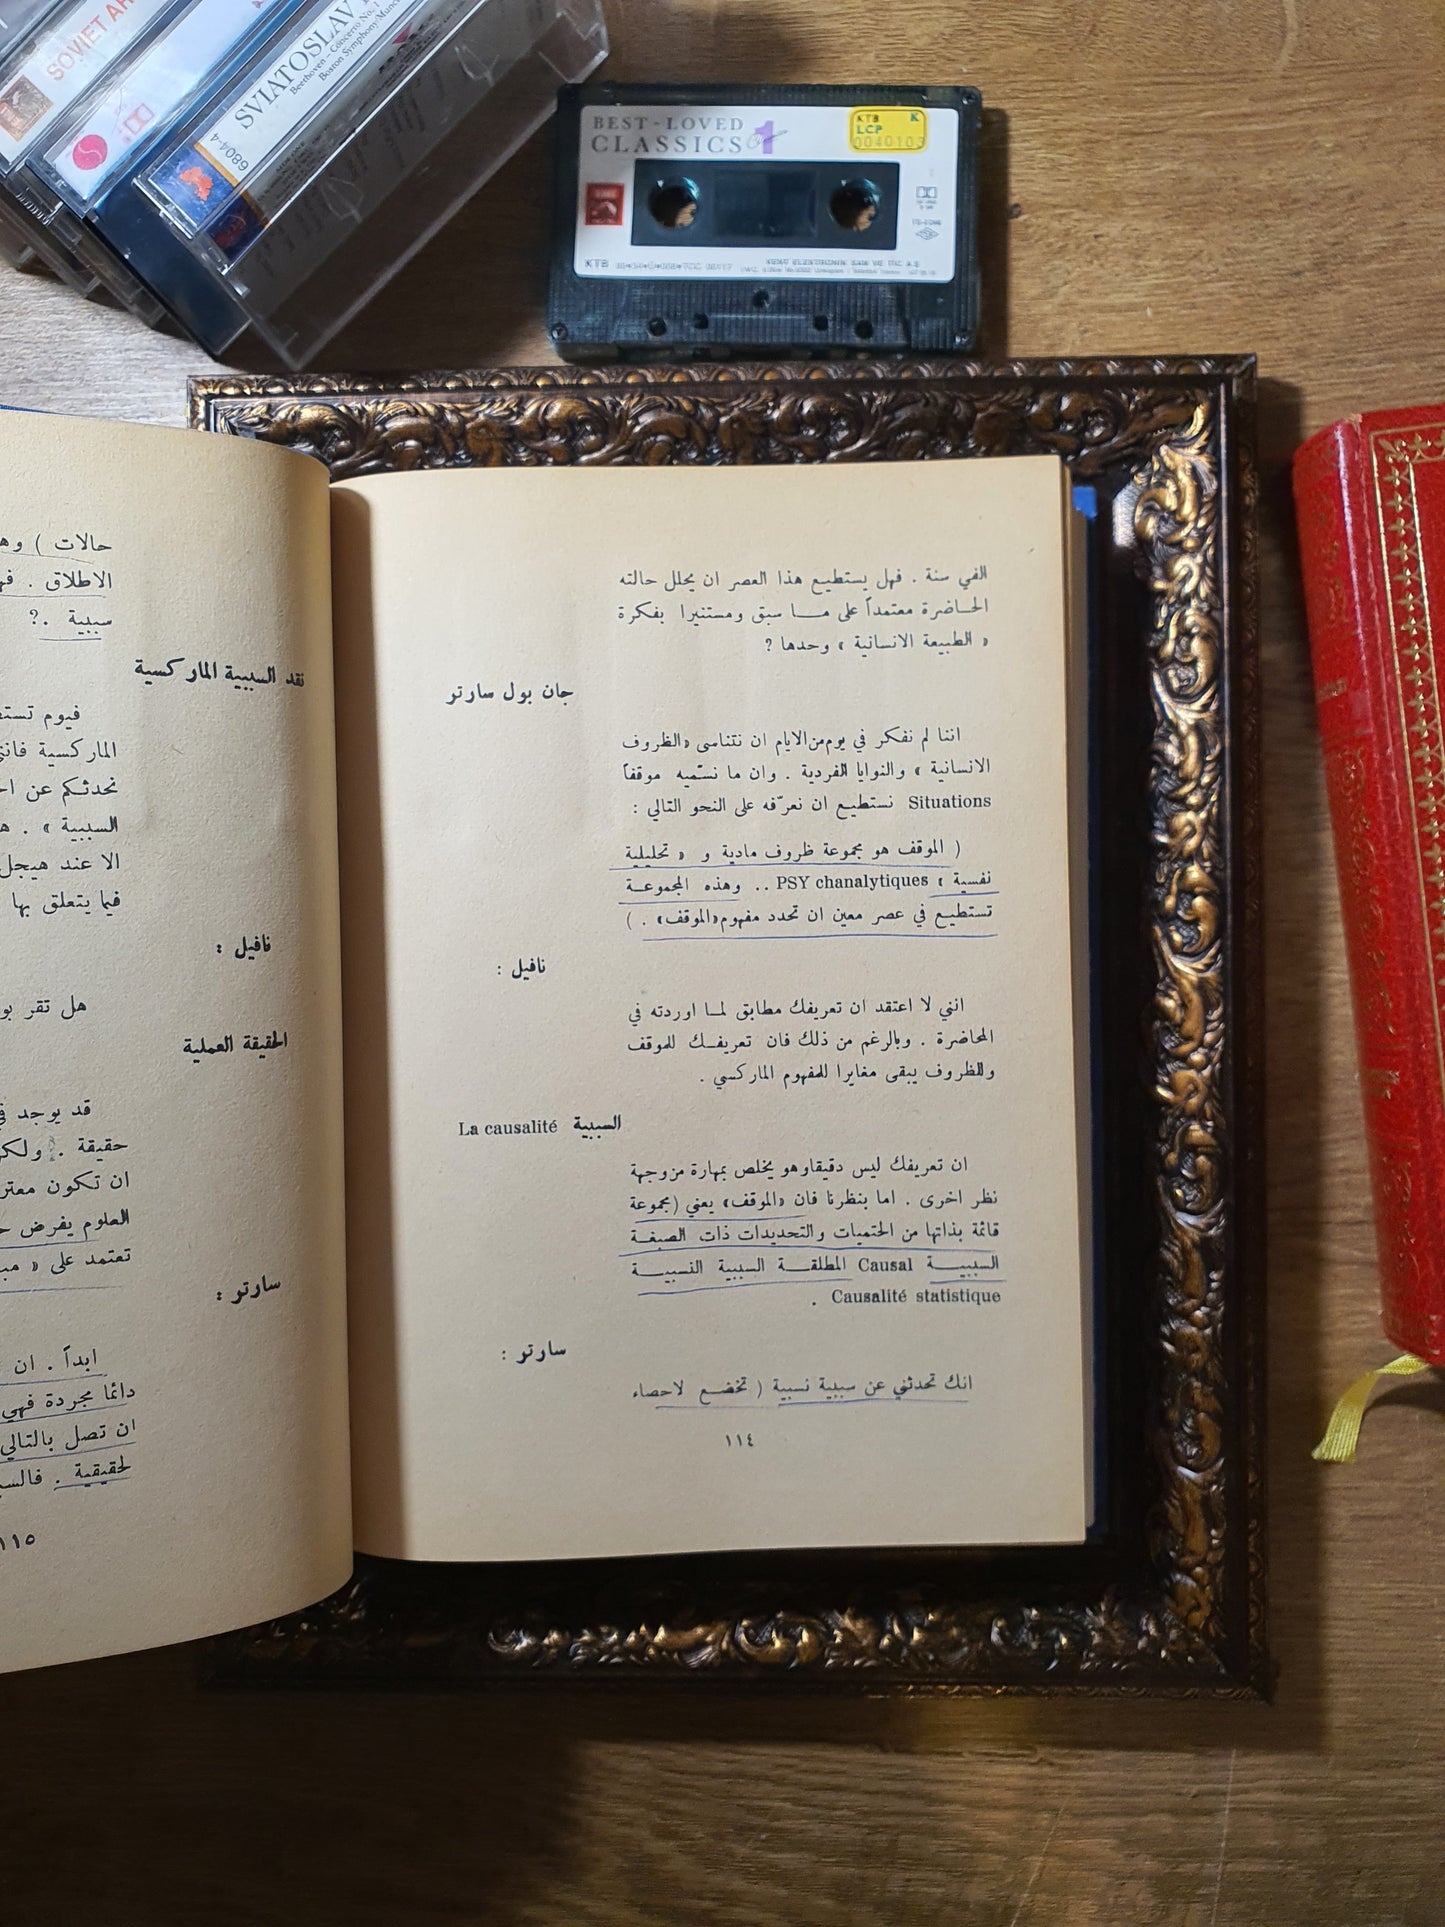 SOVIET AR
SVIATOSLAV
Beethoven - Concerto No. 1
Boston Symphony/Munch
6804-4
BEST-LOVED
CLASSICS 1
KTB K
LCP
0040103
KTB
الفي سنة . فهل يستطيع هذا العصر ان يحلل حالته
الحاضرة معتمداً على ما سبق ومستنيرا بفكرة
« الطبيعة الانسانية » وحدها ?
جان بول سارتر
اننا لم نفكر في يوم من الايام ان نتناسى «الظروف
الانسانية » والنوايا الفردية . وان ما نسميه موقفاً
Situations نستطيع ان نعرّفه على النحو التالي :
( الموقف هو مجموعة ظروف مادية و « تحليلية
نفسية » PSY chanalytiques .. وهذه المجموعة
تستطيع في عصر معين ان تحدد مفهوم «الموقف» . )
نافيل :
انني لا اعتقد ان تعريفك مطابق لما اوردته في
المحاضرة . وبالرغم من ذلك فان تعريفك للموقف
وللظروف يبقى مغايرا للمفهوم الماركسي .
السببية La causalité
ان تعريفك ليس دقيقا وهو يخلص بمهارة من وجهة
نظر اخرى . اما بنظرنا فان «الموقف» يعني (مجموعة
قائمة بذاتها من الحتميات والتحديدات ذات الصبغة
السببية Causal المطلقة السببية النسبية
Causalité statistique .
سارتر :
انك تحدثني عن سببية نسبية ( تخضع لاحصاء
١١٤
حالات ) وه
الاطلاق .
سببية .?
نقد السببية الماركسية
فيوم
الماركسية
نحدثكم عن
السببية » .
الا عند هيجل
فيما يتعلق بها
نافيل :
هل تقر
الحقيقة العملية
قد يوجد
حقيقة .
ان تكون
العلوم يفرض
تعتمد على «
سارتر :
ابداً . ان
دائما مجردة فهي
ان تصل بالتالي
لحقيقية .
١١٥